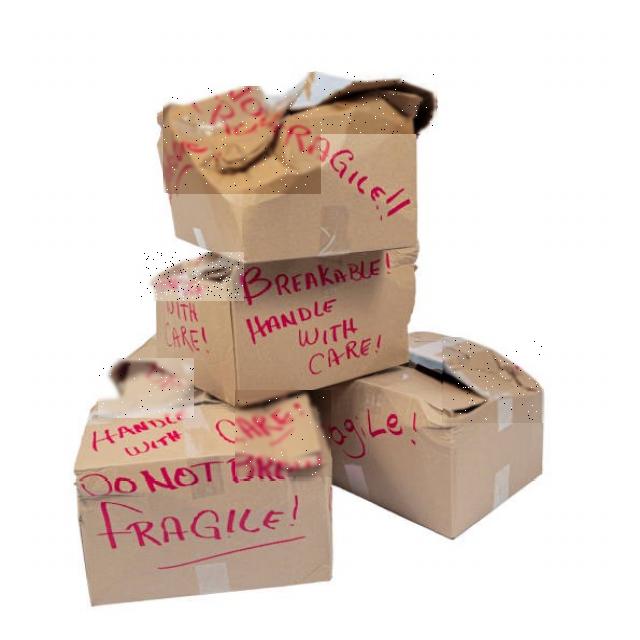 FRAGILE!!
WITH
CARE!
BREAKABLE!
HANDLE
WITH
CARE!
HANDLE
WITH CARE!
DO NOT
FRAGILE!
agiLe!